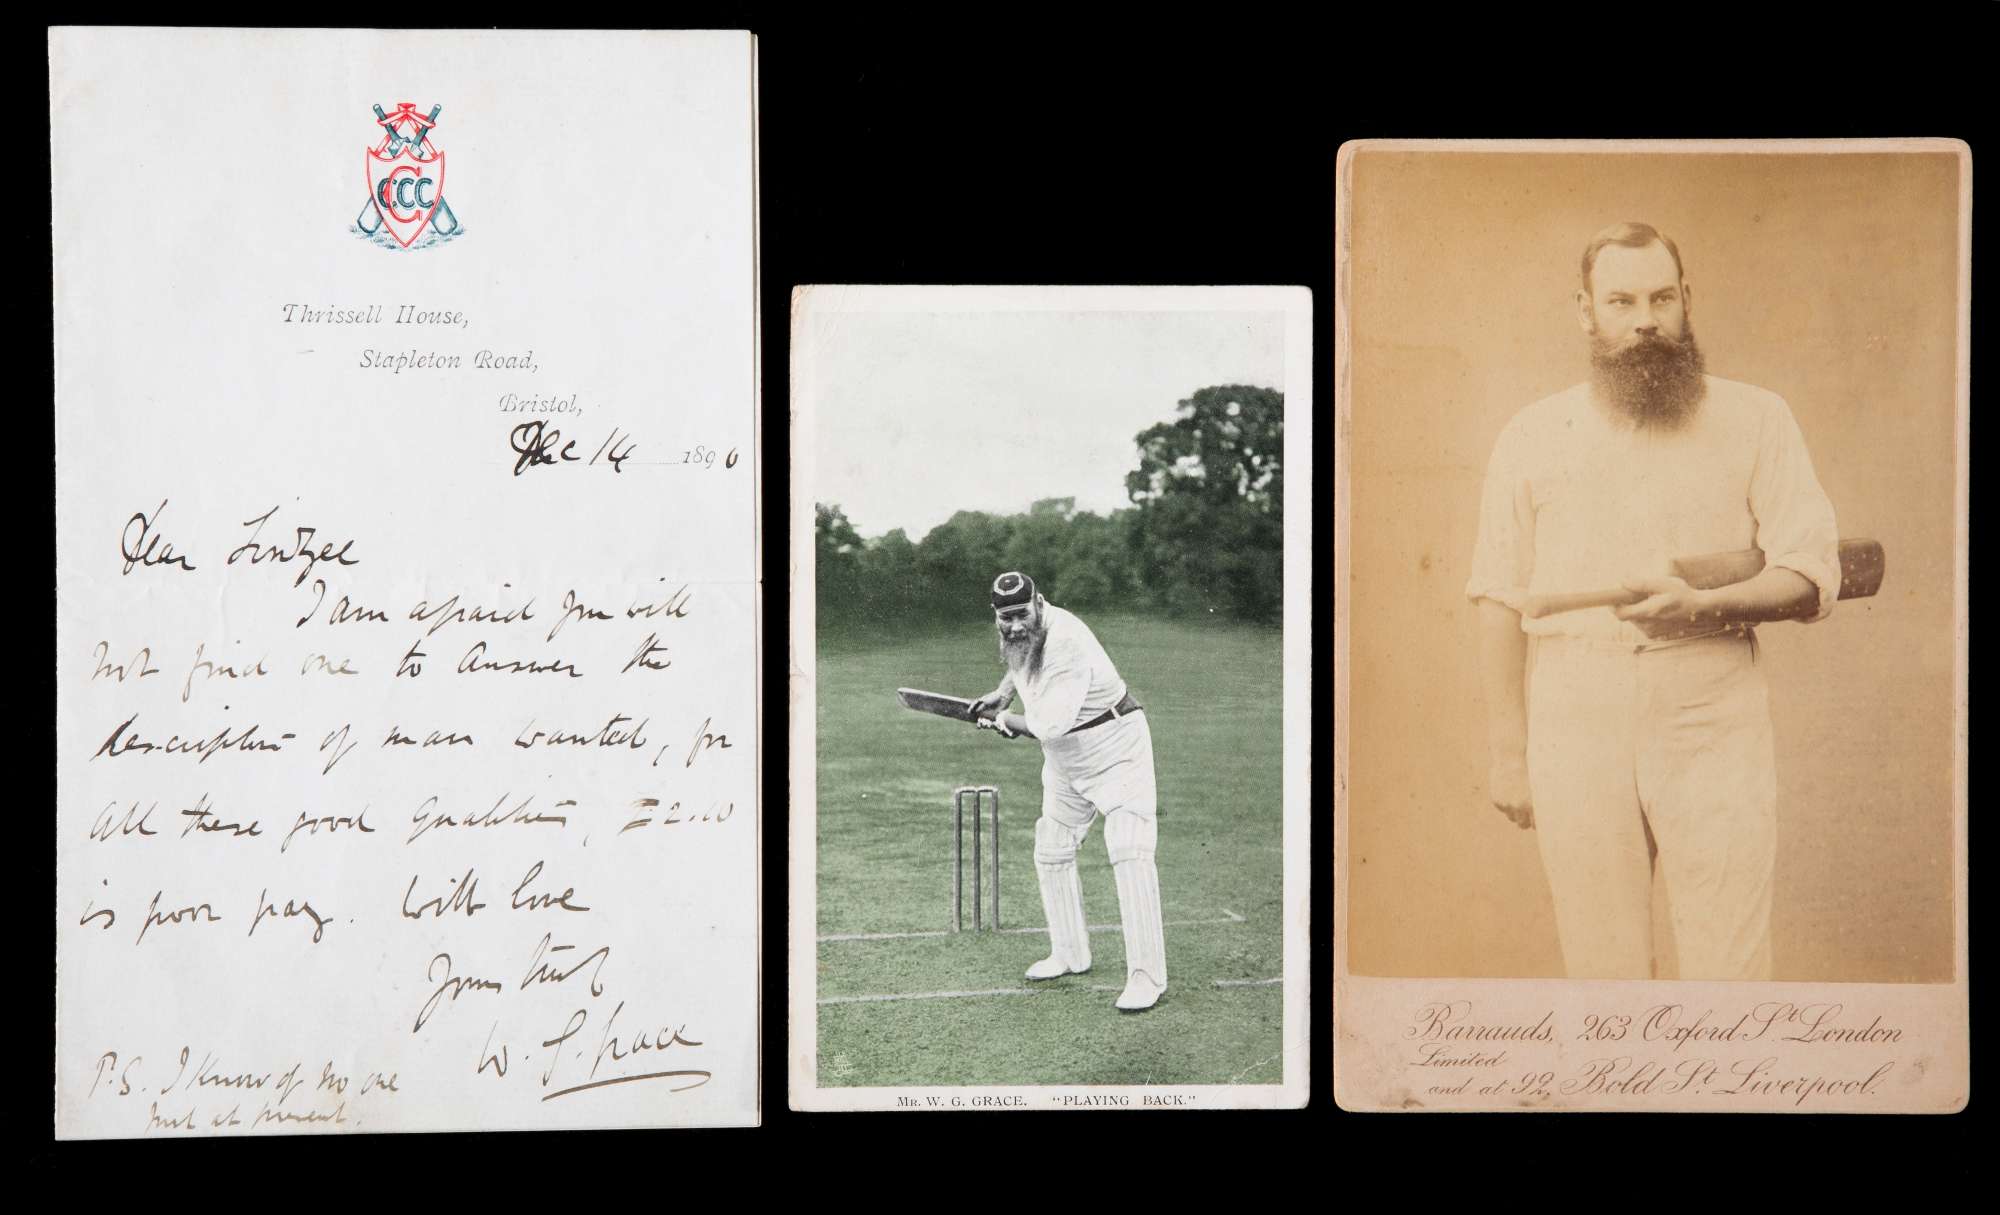 C
CCC
Thrissell House,
Stapleton Road,
Bristol,
Dec 14 1890
Dear
I am afraid you will
not find one to answer the
description of man wanted, for
all these good qualities, £2.10
is poor pay. With love
Yours truly
W. G. Grace
P.S. I know of no one
just at present.
MR. W. G. GRACE. "PLAYING BACK."
Barrauds, 263 Oxford St. London
Limited
and at 92, Bold St. Liverpool.